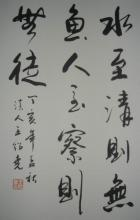 水至清則無
魚人至察則
無徒
丁亥年孟秋